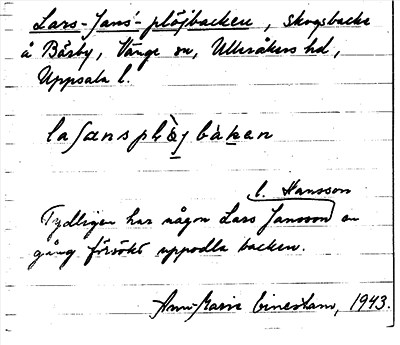 Lars-Jans-plöjbacken, skogsbacke
å Bärby, Vänge sn, Ulleråkers hd,
Uppsala l.
laſansplὰj bὰken
l. Hansson
Tydligen har någon Lars Jansson en
gång försökt uppodla backen.
Ann-Marie 1943.